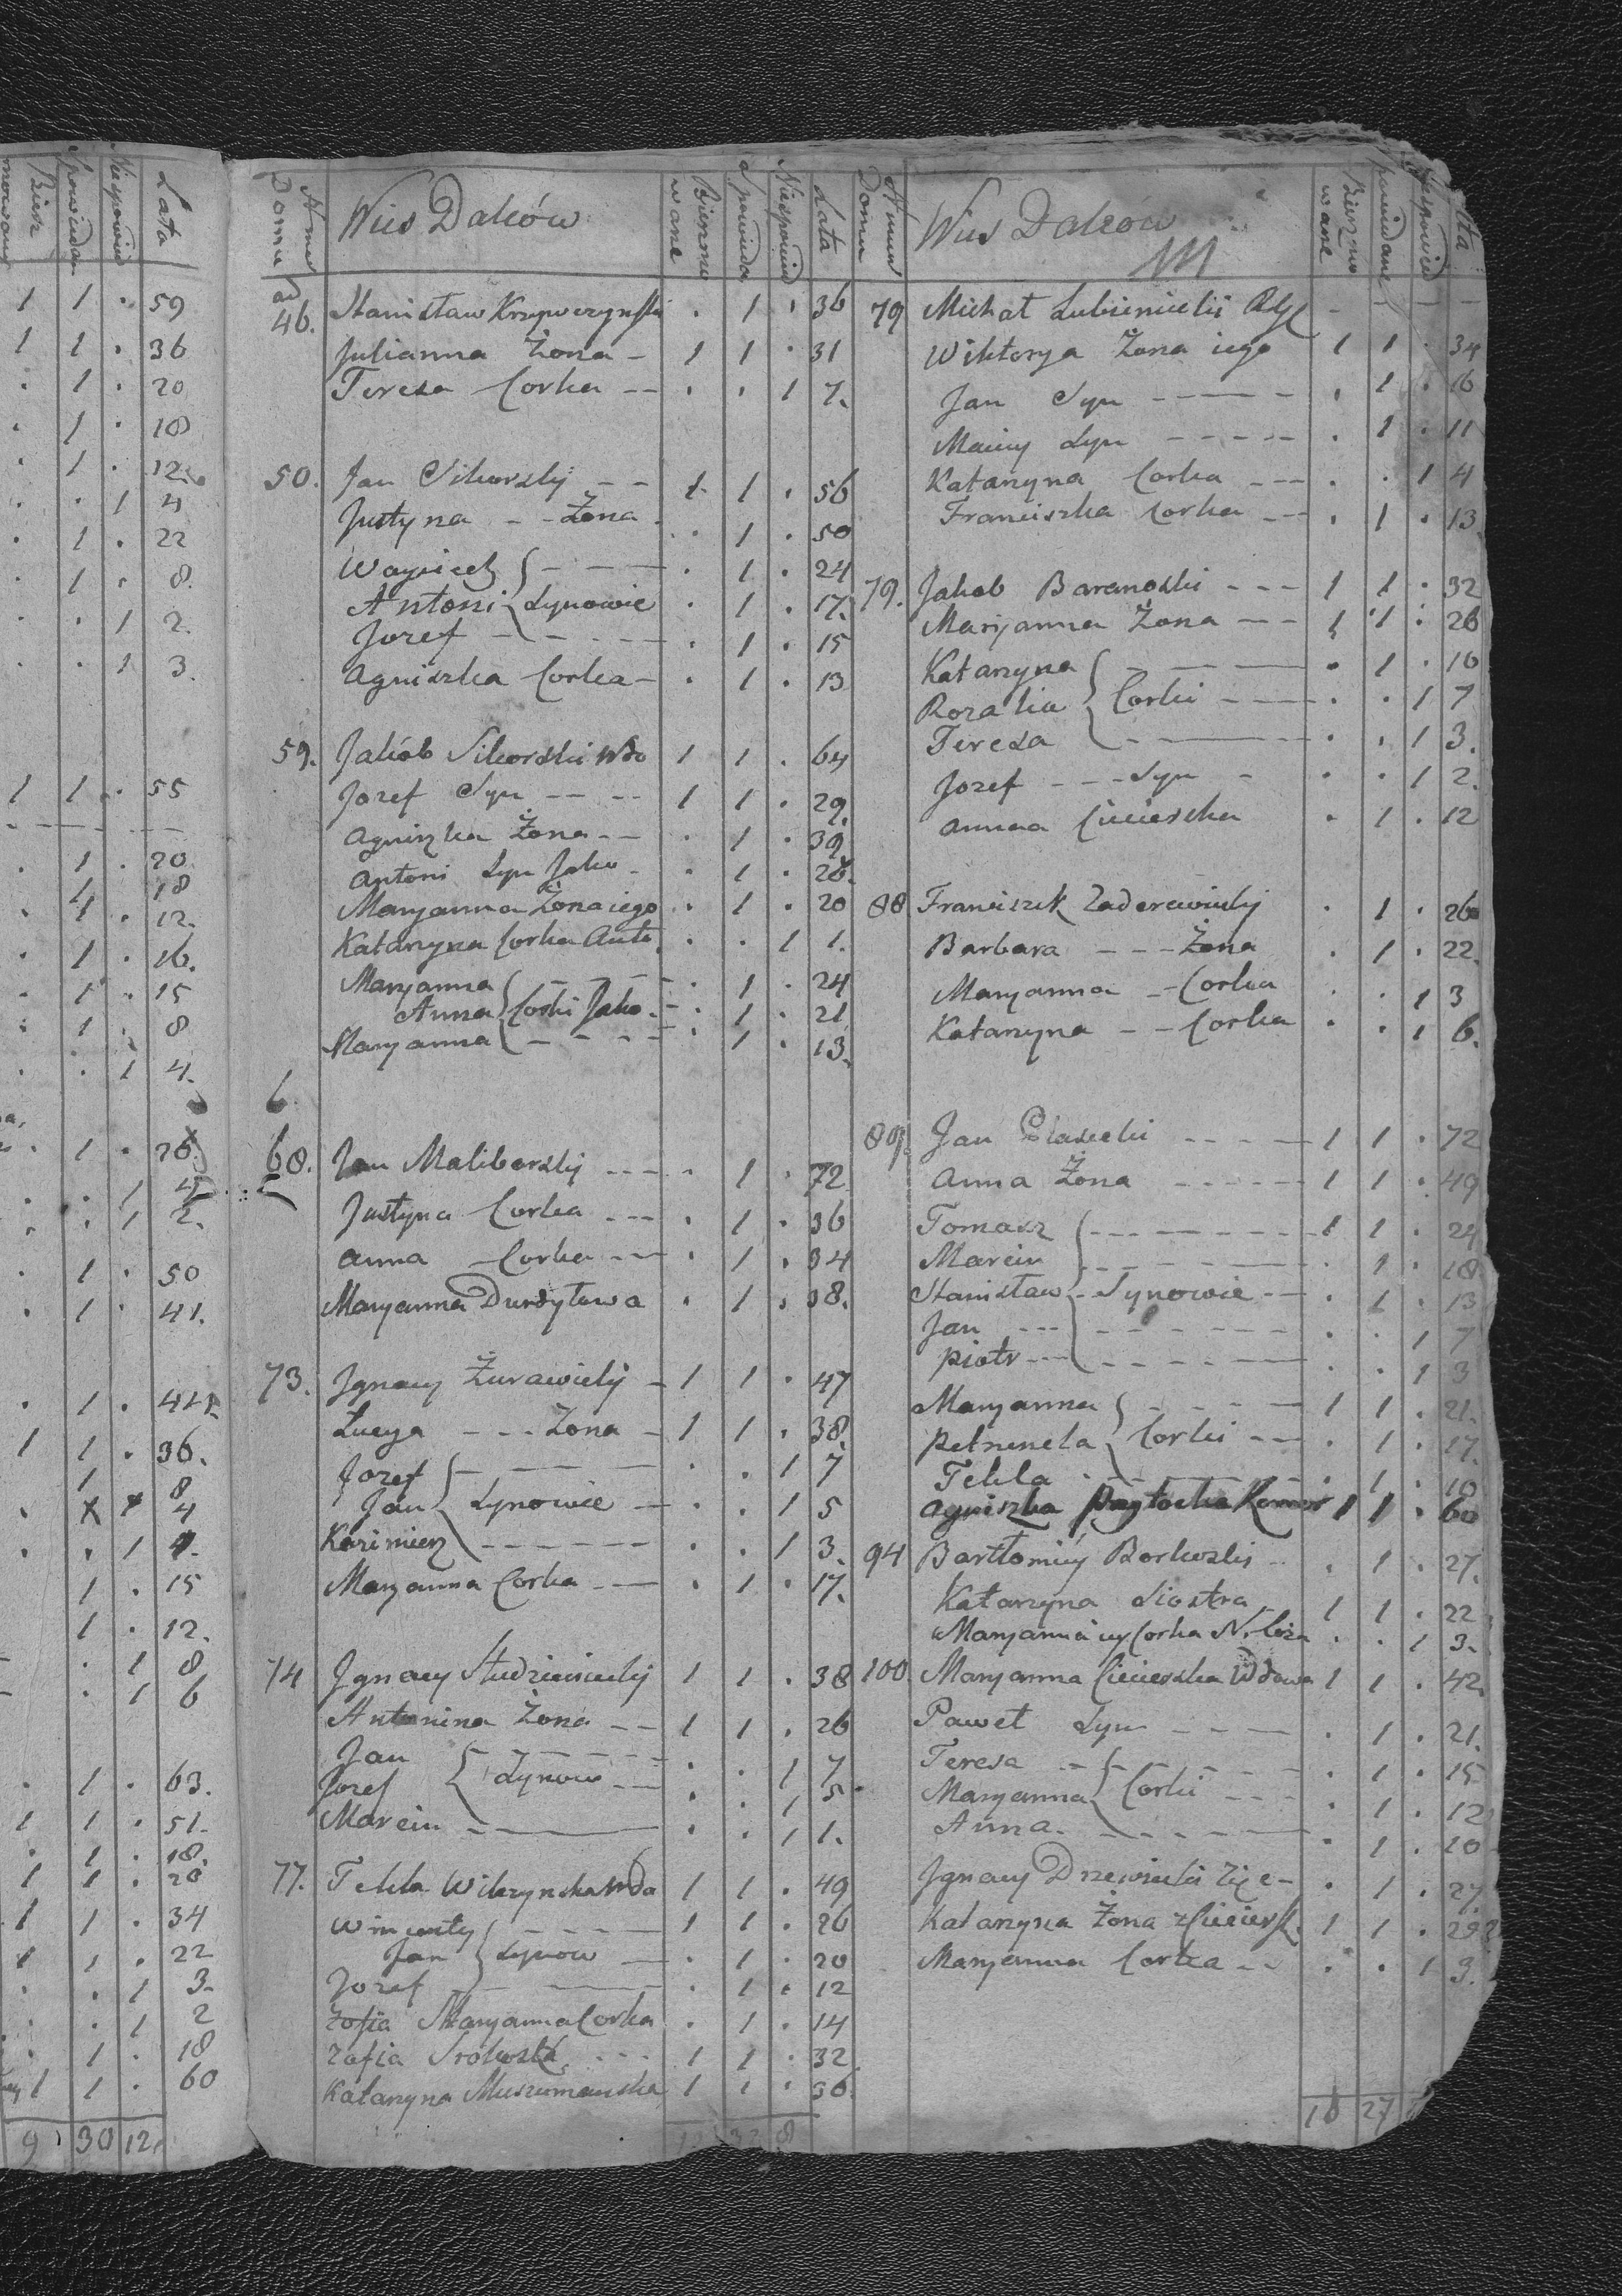 Bierz
mowany
Spowiedan
Niespowied
Lata
1 1 . 59
1 1 . 36
. 1 . 20
. 1 . 18
. 1 . 12.
. . 1 4
. 1 . 22
. 1 . 8.
. . 1 2.
. . 1 3.
1 1 . 55
. 1 . 20
1 18
. 1 . 12.
. 1 . 16.
. 1 . 15
. 1 . 8
. . 1 4.
. 1 . 26
. . 1 4
. . 1 2.
. 1 . 50
. 1 . 41.
. 1 . 41
1 1 . 36.
1 8
. x x 4
. . 1 1.
1 . 15
1 . 12.
. 1 8
. 1 6
. 1 . 63.
1 1 . 51.
. 1 . 18.
1 1 . 28
1 1 . 34
1 1 . 22
. . 1 3.
. . 1 2
. 1 . 18
1 1 . 60
9 30 12.
Num
Domu
Wies Dalców
Bierzmo
wane
Spowieda
Niespowied
Lata
ad
46. Stanisław Krzywczynski . 1 . 36
Julianna Żona - 1 1 . 31
Teresa Corka -- . . 1 7.
50. Jan Sikorskij -- 1. 1 . 56
Justyna -- Żona . . 1 . 50
Woyciech - - - . 1 . 24
Antoni Synowie . 1 . 17.
Jozef - - - . 1 . 15
Agniszka Corka - . 1 . 13
59. Jakób Sikorski Wdo 1 1 . 64
Jozef Syn -- -- 1 1 . 29.
Agniszka Żona -- . 1 . 39
Antoni Syn Jako - . 1 . 28.
Maryanna Żona iego . 1 . 20
Katarzyna Corka Anto. . . 1 1.
Maryanna - - - . 1 . 24
Anna Corki Jako. - . 1 . 21
Maryanna - - - . 1 . 13.
6
60. Jan Maliborskij --- . 1 . 72
Justyna Corka --- . 1 . 36
Anna - Corka --- . 1 . 34
Maryanna Durdytowa . 1 . 38.
73. Jgnacy Żurawickij - 1 1 . 47
Łucya --- Zona - 1 1 . 38.
Jozef - - - . . 1 7
Jan Synowie - . . 1 5
Kazimierz - - - . . 1 3.
Maryanna Corka --- . 1 . 17.
74 Jgnacy Studzienickij 1 1 . 38
Antonina Żona -- 1 1 . 26
Jan - - - . . 1 7
Jozef Synow -- . . 1 5
Marcin - - - . . 1 1.
77. Tekla Wilczynska Wda 1 1 . 49
Wincenty - - - 1 1 . 26
Jan Synow - . 1 . 20
Jozef - - - . 1 . 12
Zofia Maryanna Corka . 1 . 14
Zofia Srokoszka --- 1 1 . 32
Katarzyna Muszumanska 1 1 . 56.
8
Numer
Domu
Wies Dalcow
Bierzmo
wane
spowiedane
Niespowied
79 Michał Lubienicki -
Wiktorya Żona iego 1 1 . 34
Jan Syn ----- . 1 . 16
Maciey Syn ----- . 1 . 11
Katarzyna Corka --- . . 1 4
Franciszka Corka --- . 1 . 13
79. Jakob Baranoski --- 1 1 . 32
Maryanna Żona --- 1 1 . 26
Katarzyna - - - . 1 . 16
Rozalia Corki --- . . 1 7
Teresa - - - . . 1 3.
Jozef --- Syn - . . 1 2.
Anna Cieciеrska . 1 . 12
88 Franciszek Zaderewickij . 1 . 26
Barbara --- Żona . 1 . 22.
Maryanna - Corka . . 1 3
Katarzyna -- Corka . . 1 6.
89. Jan Piasecki ---- 1 1 . 72
Anna Żona ----- 1 1 . 49
Tomasz - - - 1 1 . 24
Marcin - - - . 1 . 18
Stanisław - Synowie -- . 1 . 13
Jan --- - - - . . 1 7
Piotr --- - - - . . 1 3
Maryanna - - - 1 1 . 21.
Petronela Corki --- . 1 . 17.
Tekla - - - . 1 . 10
Agniszka Komor 1 1 . 60
94 Bartłomiey Borkoski -- . 1 . 27.
Katarzyna Siostra 1 1 . 22
Maryanna iey Corka N. Loza . . 1 3.
100. Maryanna Cieciеrska Wdowa 1 1 . 42.
Paweł Syn ---- . 1 . 21.
Teresa - - - . 1 . 15
Maryanna Corki --- . 1 . 12
Anna. - - - . 1 . 10
Jgnacy Drzewicki Zię - . 1 . 27.
Katarzyna Żona z Ciecierk. 1 1 . 29
Maryanna Corka -- . . 1 3.
16 27